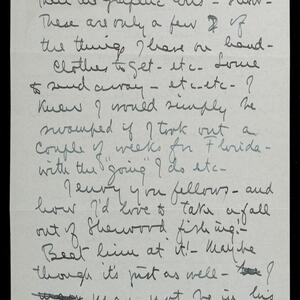 These are only a few of
the things I have on hand -
Clothes to get - etc. Some
to send away - etc - etc - I
knew I would simply be
swamped if I took out a
couple of weeks for Florida -
with the "going" I do etc -
I envy you fellows - and
how I'd love to take a fall
out of Sherwood fishing! -
Beat him at it! - Maybe
though it's just as well - I
may not be in his